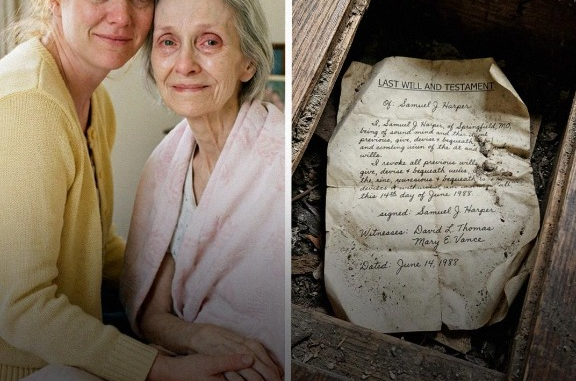 LAST WILL AND TESTAMENT
Of: Samuel J. Harper
I, Samuel J. Harper, of Springfield, MO,
being of sound mind and this
previous, give, devise & bequeath
and
wills.
I revoke all previous wills,
give, devise & bequeath
the
this 14th day of June 1988
signed: Samuel J. Harper
Witnesses: David L. Thomas
Mary E. Vance
Dated: June 14, 1988